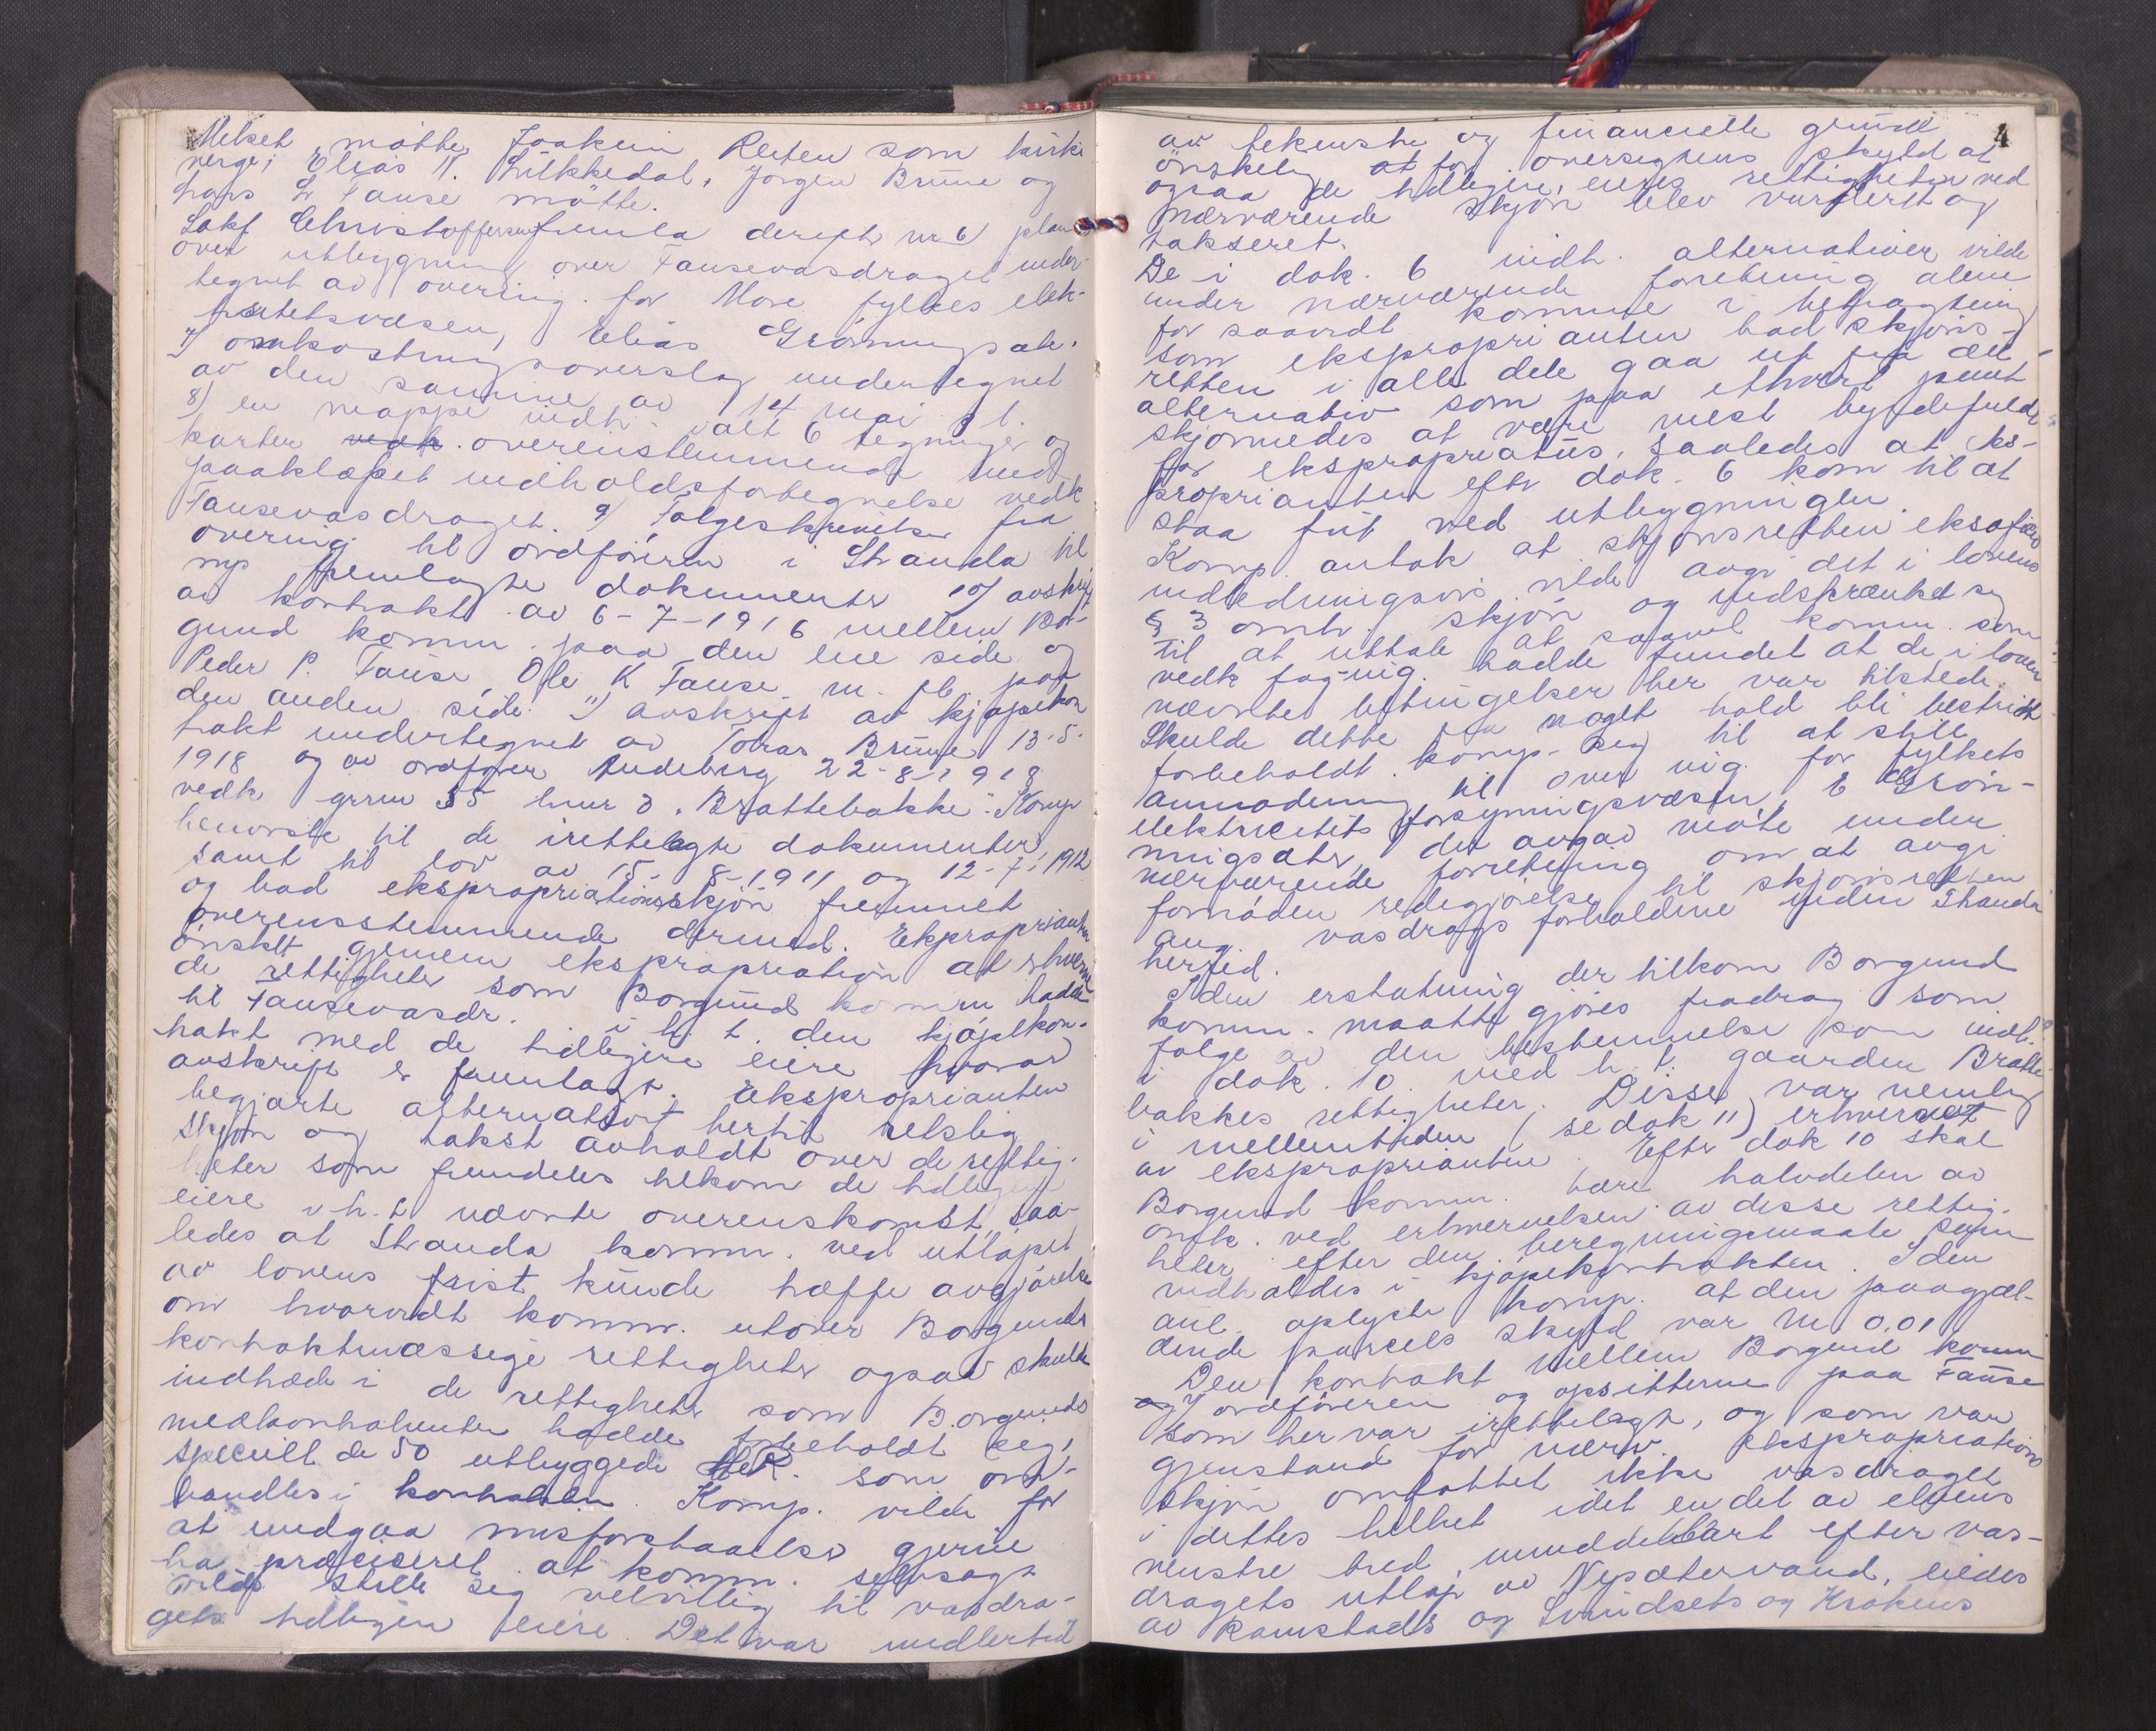 Melset møtte Joakim Reiten som kirke
verge; Elias N. Litkkedal, Jørgen Brune og
Lars L Fause møtte.
Sakf Christoffersen fremla derefter nr 6) plan
over utbygning over Fausevasdraget under-
tegnet av overing. for Møre fylkes elek-
tricitetsvæsen, Elias Grønningsæter.
7) omkostningsoverslag undertegnet
av den samme av 14 mai d. å.
8) en mappe indh. ialt 6 tegninger og
karter overensstemmende med
paaklæpet indholdsfortegnelse vedk
Fausevasdraget. 9) Følgeskrivelse fra
overing. til ordføreren i Stranda til
nys fremlagte dokumenter 10) avskrift
av kontrakt av 6-7-1916 mellem Bor-
gund komm. paa den ene side og
Peder P. Fause, Ole K Fause m. fl. paa
den anden side. 11) avskrift av kjøpekon
trakt undertegnet av Tomas Brune 13.5.
1918 og av ordfører Andeberg 22-8-1918
vedk grnr 35 bnr 3. "Brattebakke". Komp
henviste til de irettelagte dokumenter
samt til lov av 15-8-1911 og 12-7-1912
og bad ekspropriationsskjøn fremmet
overensstemmende dermed. Ekspropriant
ønsket gjennem ekspropriation at erhverve
de rettigheter som Borgund komm hadde
til Fausevasdr. i h. t. den kjøpekon-
trakt med de tidligere eiere hvorav
avskrift er fremlagt. Eksproprianten
begjærte alternativt hertil retslig
skjøn og takst avholdt over de rettig-
heter som fremdeles tilkom de tidligere
eiere i h. t. nævnte overenskomst, saa-
ledes at Stranda komm. ved utløpet
av lovens frist kunde træffe avgjørelse
om hvorvidt komm. utover Borgunds
kontaktmæssige rettigheter ogsaa skulde
indtræde i de rettigheter som Borgunds
medkontrahenter hadde forbeholdt seg,
specielt de 50 utbyggede HK. som om-
handles i kontrakten. Komp. vilde for
at undgaa misforstaaelse gjerne
ha præciseret at komm. selvsagt
vilde stille seg velvillig til vasdra-
gets tidligere eiere. Det var imidlertid
1
av tekniske og financielle grunde
ønskelig at for oversigtens skyld at
ogsaa de tidligere eieres rettigheter ved
nærværende skjøn blev vurdert og
takseret.
De i dok. 6 indh. alternativer vilde
under nærværende forretning alene
for saavidt komme i betragtning
som eksproprianten bad skjøns-
retten i alle dele gaa ut fra det
alternativ som paa ethvert punkt
skjønnedes at være mest byrdefulde
for ekspropriatus, saaledes at eks-
proprianten efter dok. 6 kom til at
staa frit ved utbygningen.
Komp. antok at skjønsretten eksoficio
indledningsvis vilde avgi det i lovens
§ 3 omh. skjøn og indskrænket sig
til at uttale at saavel komm. som
vedk fag-ing. hadde fundet at de i loven
nævnte betingelser her var tilstede.
Skulde dette fra noget hold bli bestridt
forbeholdt komp. seg til at stille
anmodning til over ing. for fylkets
elektricitets forsyningsvæsen, E Grøn-
ningsæter, der avgav møte under
nærværende forretning om at avgi
fornøden redegjørelse til skjønsretten
ang. vasdragsforholdene inden Stranda
herred.
I den erstatning der tilkom Borgund
komm. maatte gjøres fradrag som
følge av den bestemmelse som indh.
i dok. 10 med h. t. gaarden Bratte
bakkes rettigheter. Disse var nemlig
i mellemtiden (se dok 11) erhvervet
av eksproprianten. Efter dok 10 skal
Borgund komm. bære halvdelen av
omk. ved erhvervelsen av disse rettig-
heter efter den beregningsmaate som
indholdes i kjøpekontrakten. I den
anl. oplyste komp. at den paagjæl-
dende parcels skyld var M. 0,01
Den kontrakt mellem Borgund komm
og ordføreren og opsitterne paa Fause
som her var irettelagt, og som var
gjenstand for nærv. ekspropriations
skjøn omfattet ikke vasdraget
i dettes helhet idet en del av elvens
venstre bred, umiddelbart efter vas-
dragets utløp av Nysætervand, eiedes
av Ramstads og Svindsets og Krokens